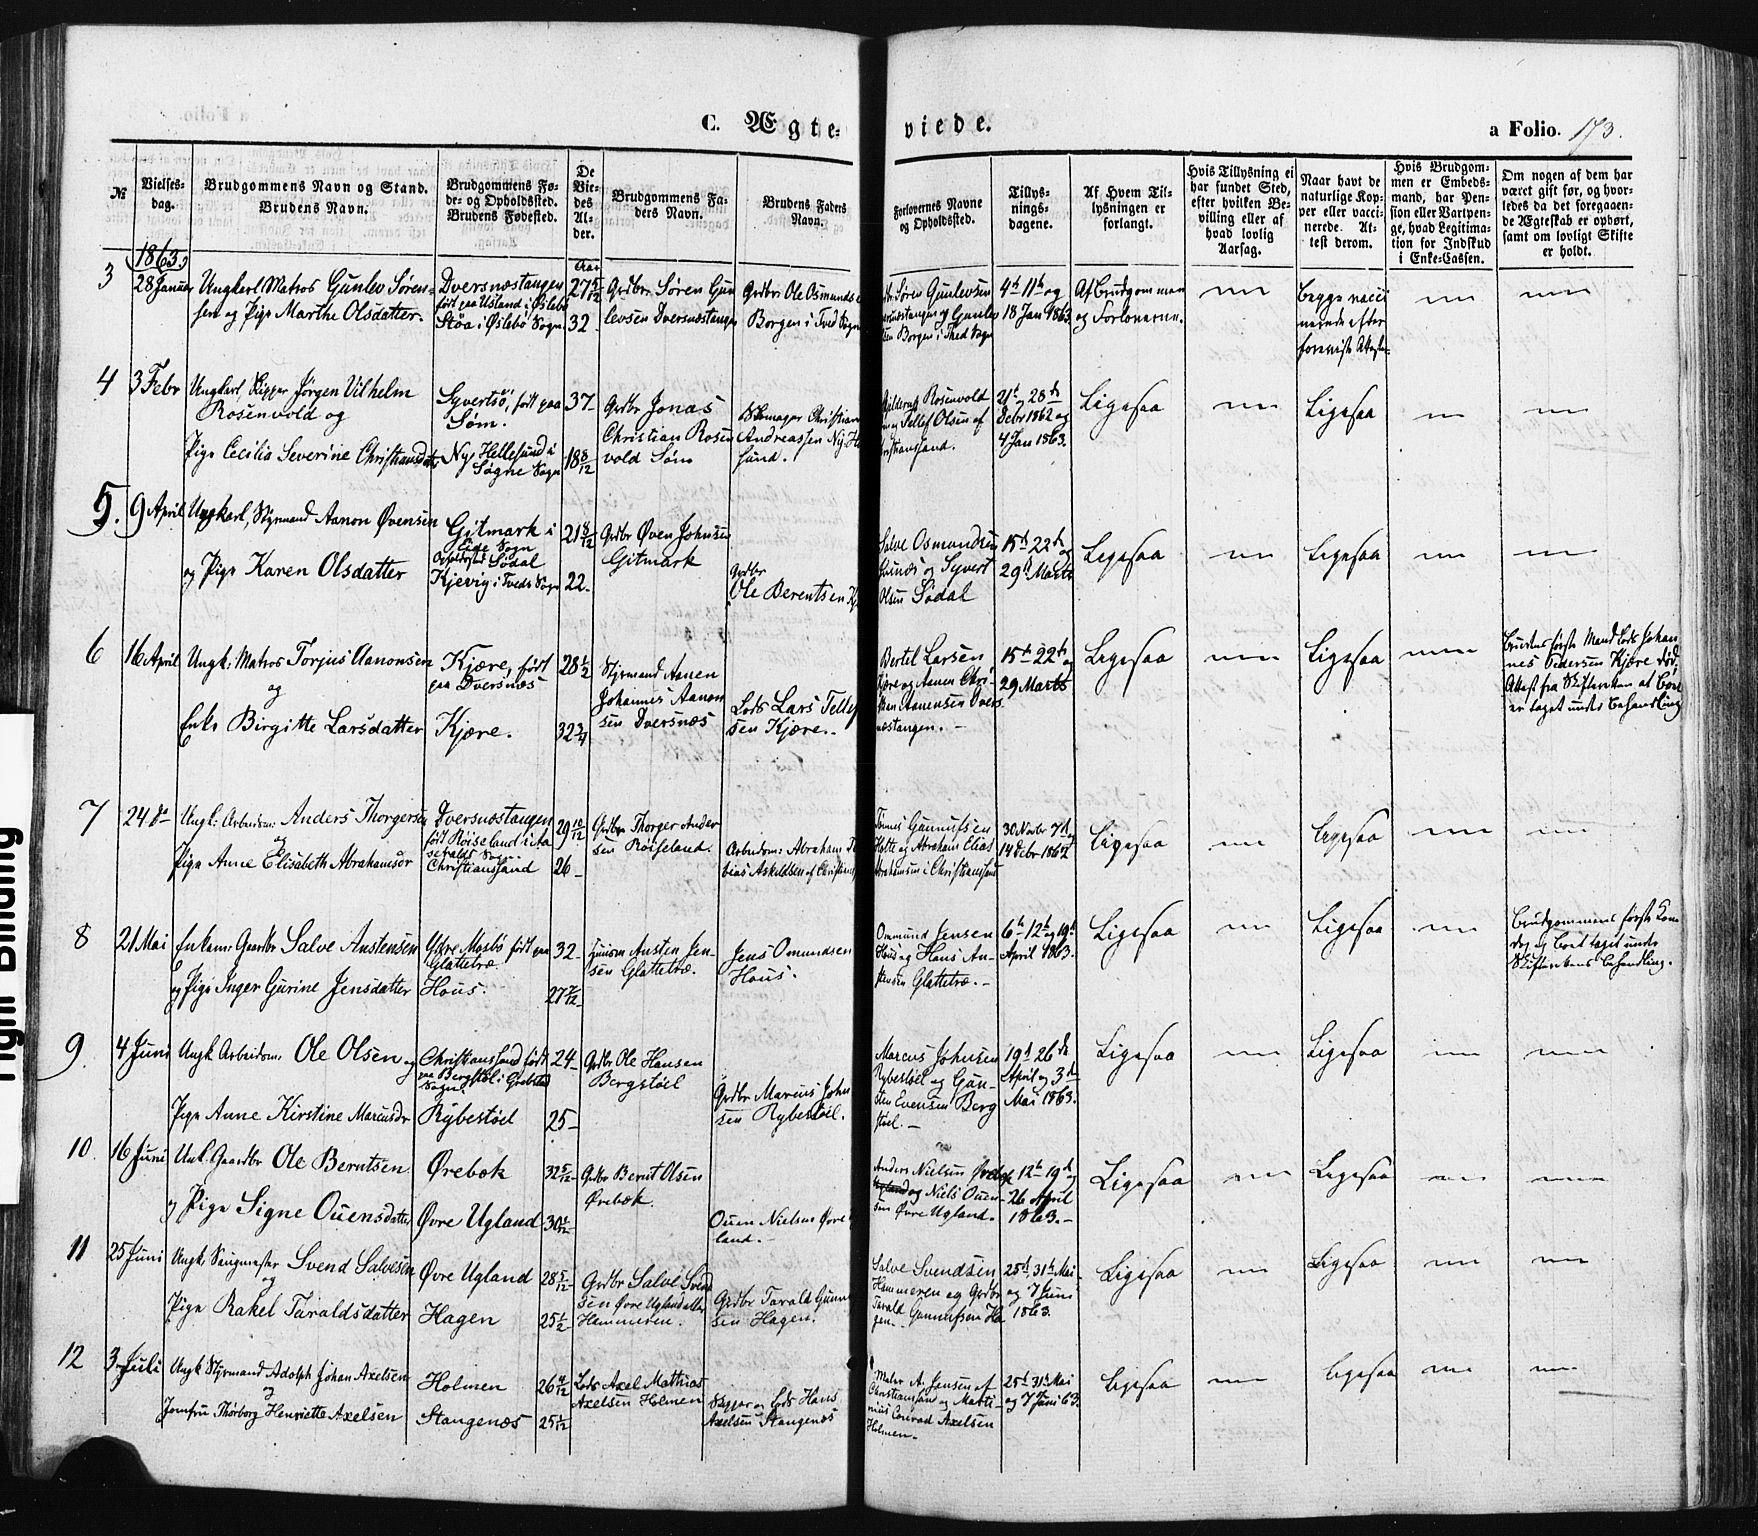 C. Ægte-
viede.
a Folio. 173.
№
Vielses-
dag.
Brudgommens Navn og Stand.
Brudens Navn.
Brudgommens Fø-
de- og Opholdssted.
Brudens Fødested.
De
Vie-
des
Al-
der.
Brudgommens Fa-
ders Navn.
Brudens Faders
Navn.
Forlovernes Navne
og Opholdssted.
Tillys-
nings-
dagene.
Af Hvem Til-
lysningen er
forlangt.
Hvis Tillysning ei
har fundet Sted,
efter hvilken Be-
villing eller af
hvad lovlig
Aarsag.
Naar havt de
naturlige Kop-
per eller vacci-
nerede. At-
test derom.
Hvis Brudgom-
men er Embeds-
mand, har Pen-
sion eller Vartpen-
ge, hvad Legitima-
tion for Indskud
i Enke-Cassen.
Om nogen af dem har
været gift før, og hvor-
ledes da det foregaaen-
de Ægteskab er ophørt,
samt om lovligt Skifte
er holdt.
1863.
Aar
3
28 Januar
Ungkarl Matros Gunlev Søren-
sen og Pige Marthe Olsdatter.
Dversnæstangen
født paa Usland i Øslebø
Støa i Øslebø Sogn
27 5/12
32
Grdbr. Søren Gun
levsen Dversnæstangen
Grdbr. Ole Osmunds
Borgen i Tved Sogn
Søren Gunlevsen
og Gunlev
Borgen i Tved Sogn
4de 11te og
18 Jan 1863.
Af Brudgommen
og Forloverne.
Begge vacci
nerede efter
foreviste Attester
4
3 Febr
Ungkarl, Skipper Jørgen Vilhelm
Rosenvold og
Pige Cecilia Severine Christiansdatr
Syvertsö, født paa
Søm.
Ny Hellesund i
Søgne Sogn
37
18 8/12
Grdbr Jonas
Christian Rosen
vold Søm
Christian
Andreassen Ny He
sund.
Rosenvold
og Tellef Olsen af
Christianssand.
21de 28de
Debr 1862 og
4 Jan 1863.
Ligesaa
Ligesaa
5.
9 April
Ungkarl, Styrmand Aanon Øvensen
og Pige Karen Olsdatter
Gitmark i
Eide Sogn
Opholdssted Sødal
Kjevig i Tveds Sogn
21 8/12
22
Grdbr Øven Johnsen
Gitmark
Grdbr
Ole Berentsen Kj
Salve Osmundsen
Lunde og Syvert
Olsen Sødal
15de 22de og
29de Marts
Ligesaa
Ligesaa
6
16 April
Ungk: Matros Torjus Aanonsen
og
Enke Birgitte Larsdatter
Kjære, født
paa Dversnæs
Kjære.
28 1/2
32 3/4
Styrmand Aanen
Johannes Aanon
sen Dversnæs
Lods Lars Tellef
sen Kjære.
Bertel Larsen
Kjære og Aanen Chri-
sten Aanensen Dvers
næstangen.
15de 22de og
29 Marts
Ligesaa
Ligesaa
Brudens første Mand Lods Johan
nes Pedersen Kjære død,
Attest fra Skifteretten at Boet
er taget under Behandling
7
24 do
Ungk: Arbeidsm: Anders Thorgersen
og
Pige Anne Elisabeth Abrahamsdr
Dversnæstangen
født Røiseland i Aa
seralds Sogn
Christianssand
29 10/12
26
Grdbr Thorger Ander
sen Røiseland.
Arbeidsm: Abraham To
bias Askildsen af Christians
Tønnes Gunnufsen
Hotte og Abraham Elias
Abrahamsen i Christianssand
30 Novbr 7de
14 Debr 1862
Ligesaa
Ligesaa
8
21 Mai
Enkem: Gaardbr Salve Anstensen
og Pige Inger Gurine Jensdatter
Ytre Mosbø født paa
Glattetræ
Hous.
32
27 7/12
Husm Ansten Jen-
sen Glattetræ.
Jens Omundsen
Hous.
Ommund Jensen
Hous og Hans An-
stensen Glattetræ.
6te 12te og 19de
April 1863.
Ligesaa
Ligesaa
Brudgommens første Kone
dog og Boet taget under
Skifterettens Behandling.
9.
4 Juni
Ungk Arbeidsm: Ole Olsen og
Pige Anne Kirstine Marcusdr
Christianssand født
paa Bergstøl i Grebstad
Sogn
Rybestøel
24
25
Grdbr Ole Hansen
Bergstøel
Grdbr Marcus John
sen Rybestøel.
Marcus Johnsen
Rybestøel og Gun-
sten Evensen Berg
støel.
19de 26de
April og 3de
Mai 1863.
Ligesaa
Ligesaa
10.
16 Juni
Unk. Gaardbr Ole Berntsen
og Pige Signe Ouensdatter
Ørebæk
Øvre Ugland
32 5/12
30
Grdbr Bernt Olsen
Ørebæk.
Ouen Nielsen Øvre
land.
Anders Nielsen
og Niels Ouen-
sen Øvre Ugland.
12te 19de og
26 April
1863.
Ligesaa
Ligesaa
11
25 Juni
Ungk Svend Salvesen
og
Pige Rakel Taraldsdatter
Øvre Ugland
Hagen
28 5/12
25 1/2
Grdbr Salve Svend
sen Øvre Ugland eller
Hammeren.
Grdbr Tarald Gunuf
sen Hagen.
Salve Svendsen
Hammeren og Grdbr
Tarald Gunnufsen Ha
gen.
25de, 31te Mai
og 7 Juni
1863.
Ligesaa
Ligesaa
12
3 Juli
Ungk Styrmand Adolph Johan Axelsen
og
Jomfru Thorborg Henriette Axelsen
Holmen
Stangenæs
26 4/12
25 1/2
Lods Axel Mathias
Axelsen Holmen
Skipper og Lods Hans
Axelsen Stangenæs
Maler A. Jensen af
Christianssand og Marti-
nius Conrad Axelsen
Holmen.
25de 31te Mai
og 7 Juni 63.
Ligesaa
Ligesaa
Tight Binding